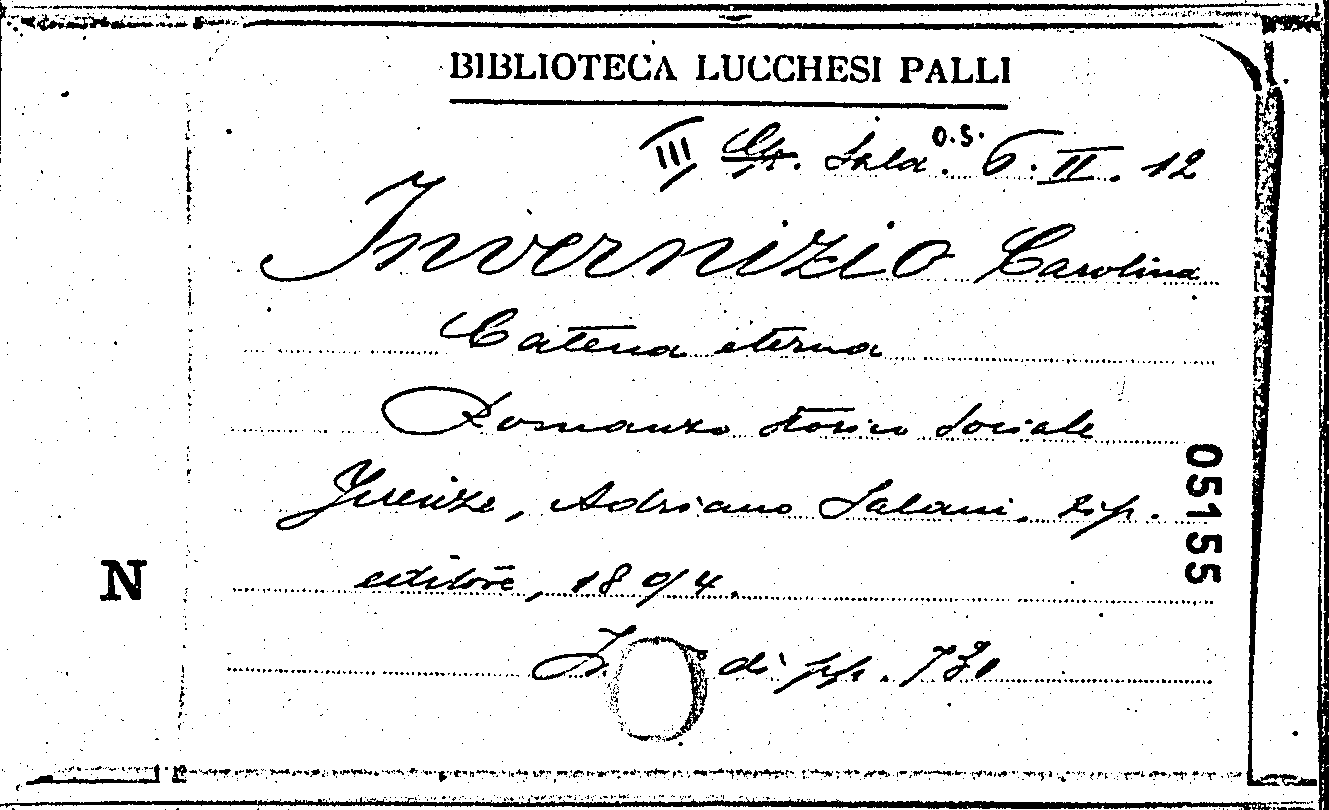 BIBLIOTECA LUCCHESI PALLI
III Sala. O.S. 6. II. 12
Invernizio Carolina
Catena eterna
Romanzo storico sociale
Firenze, Adriano Salani, tip.
editore, 1894.
05155
N
In di pp. 731